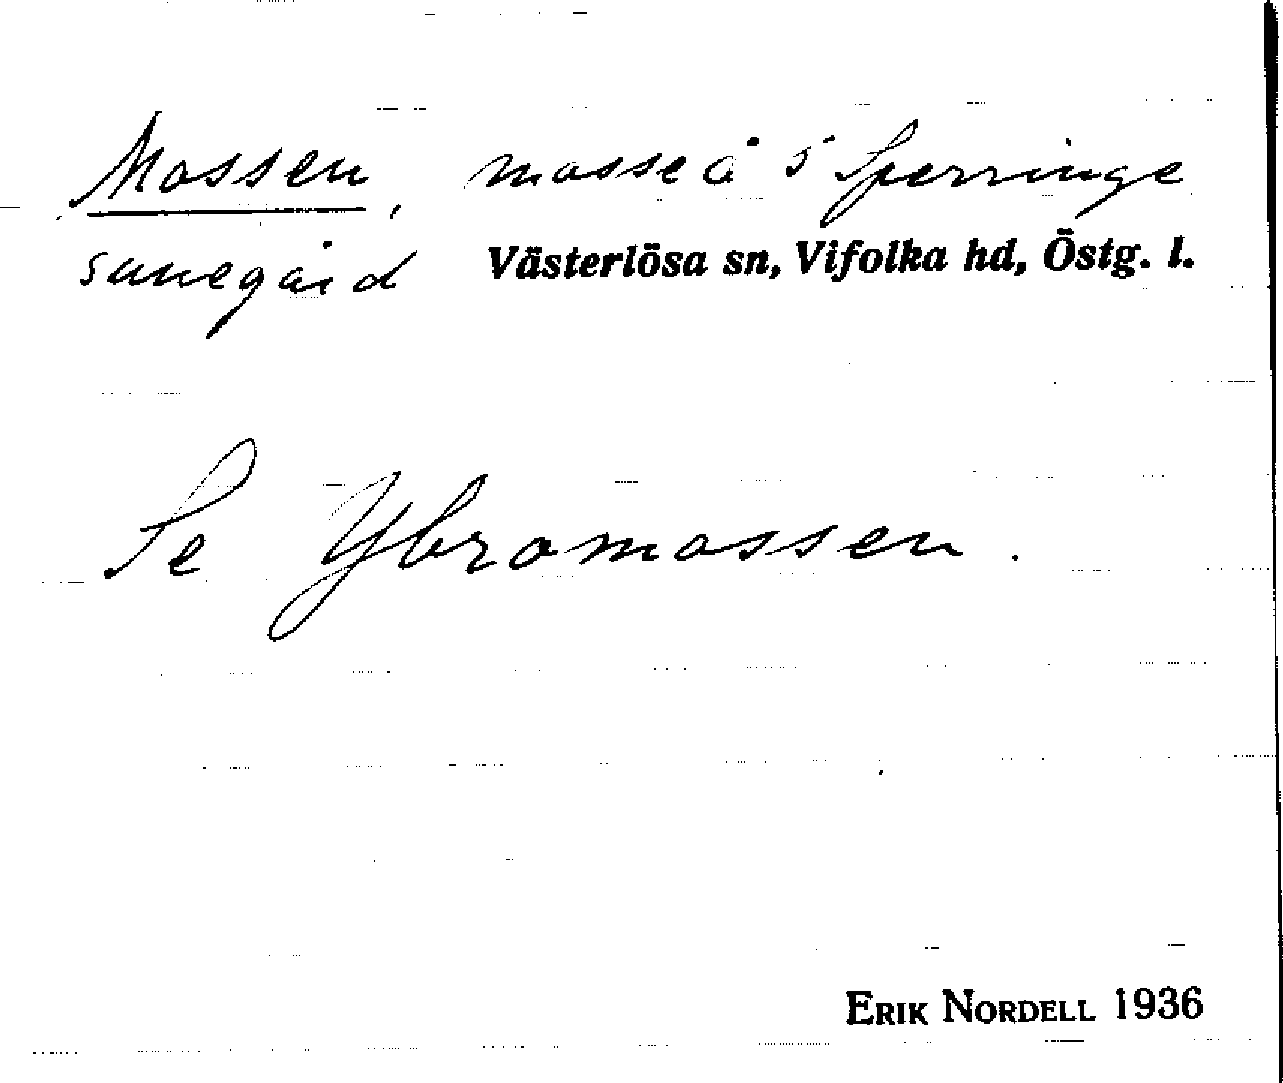 Mossen, mosse å 5 Sperringe
Sunegård Västerlösa sn, Vifolka hd, Östg. l.
Se Ybromossen.
ERIK NORDELL 1936